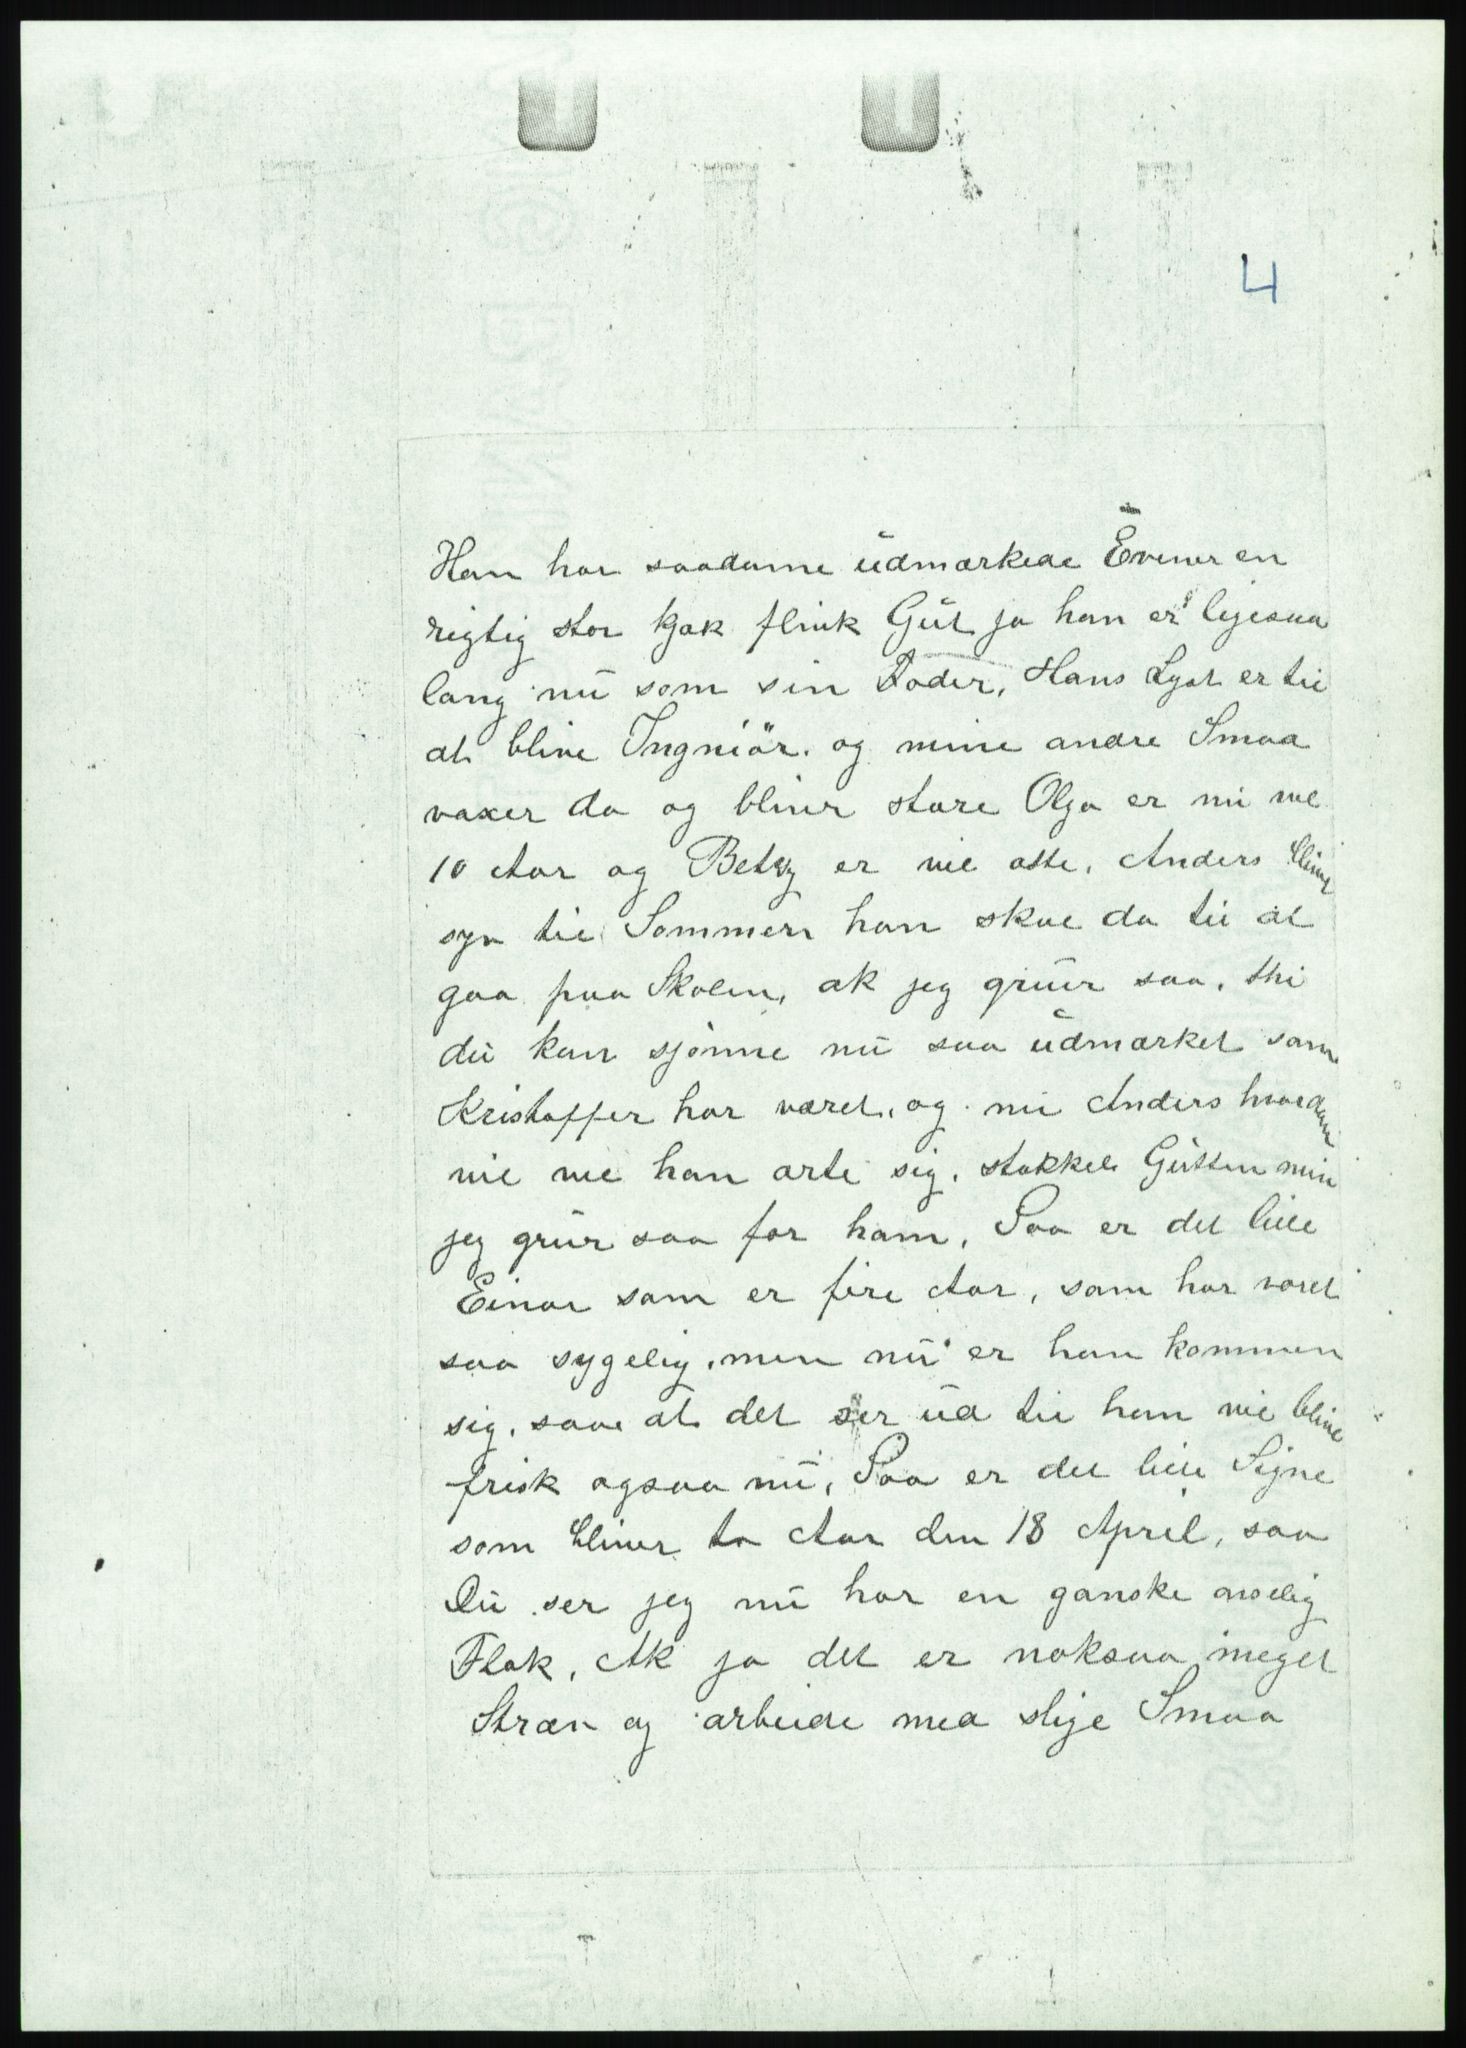 4
Han har saadanne üdmærkede Evener en
rigtig stor kjæk flink Güt ja han er ligesaa
lang nü som sin Fader, Hans Lyst er til
at blive Ingniör. og mine andre Smaa
vaxer da og bliver store Olga er nü vel
10 Aar og Betzy er vel otte. Anders bliver
syv til Sommern han skal da til at
gaa paa Skolen, ak jeg grüer saa, thi
dü kan sjönne nü saa üdmærket som
Kristoffer har været, og nü Anders hvordan
vil vel han arte sig. stakkels Gütten min
jeg grüer saa for ham, Saa er det lille
Einar som er fire Aar, som har været
saa sygelig, men nü er han kommen
sig, saa at det ser üd til han vil blive
frisk ogsaa nü, Saa er det lille Signe
som bliver to Aar den 18 April, saa
Dü ser jeg nü har en ganske anselig
Flok, Ak ja det er noksaa meget
Stræv og arbeide med slige Smaa